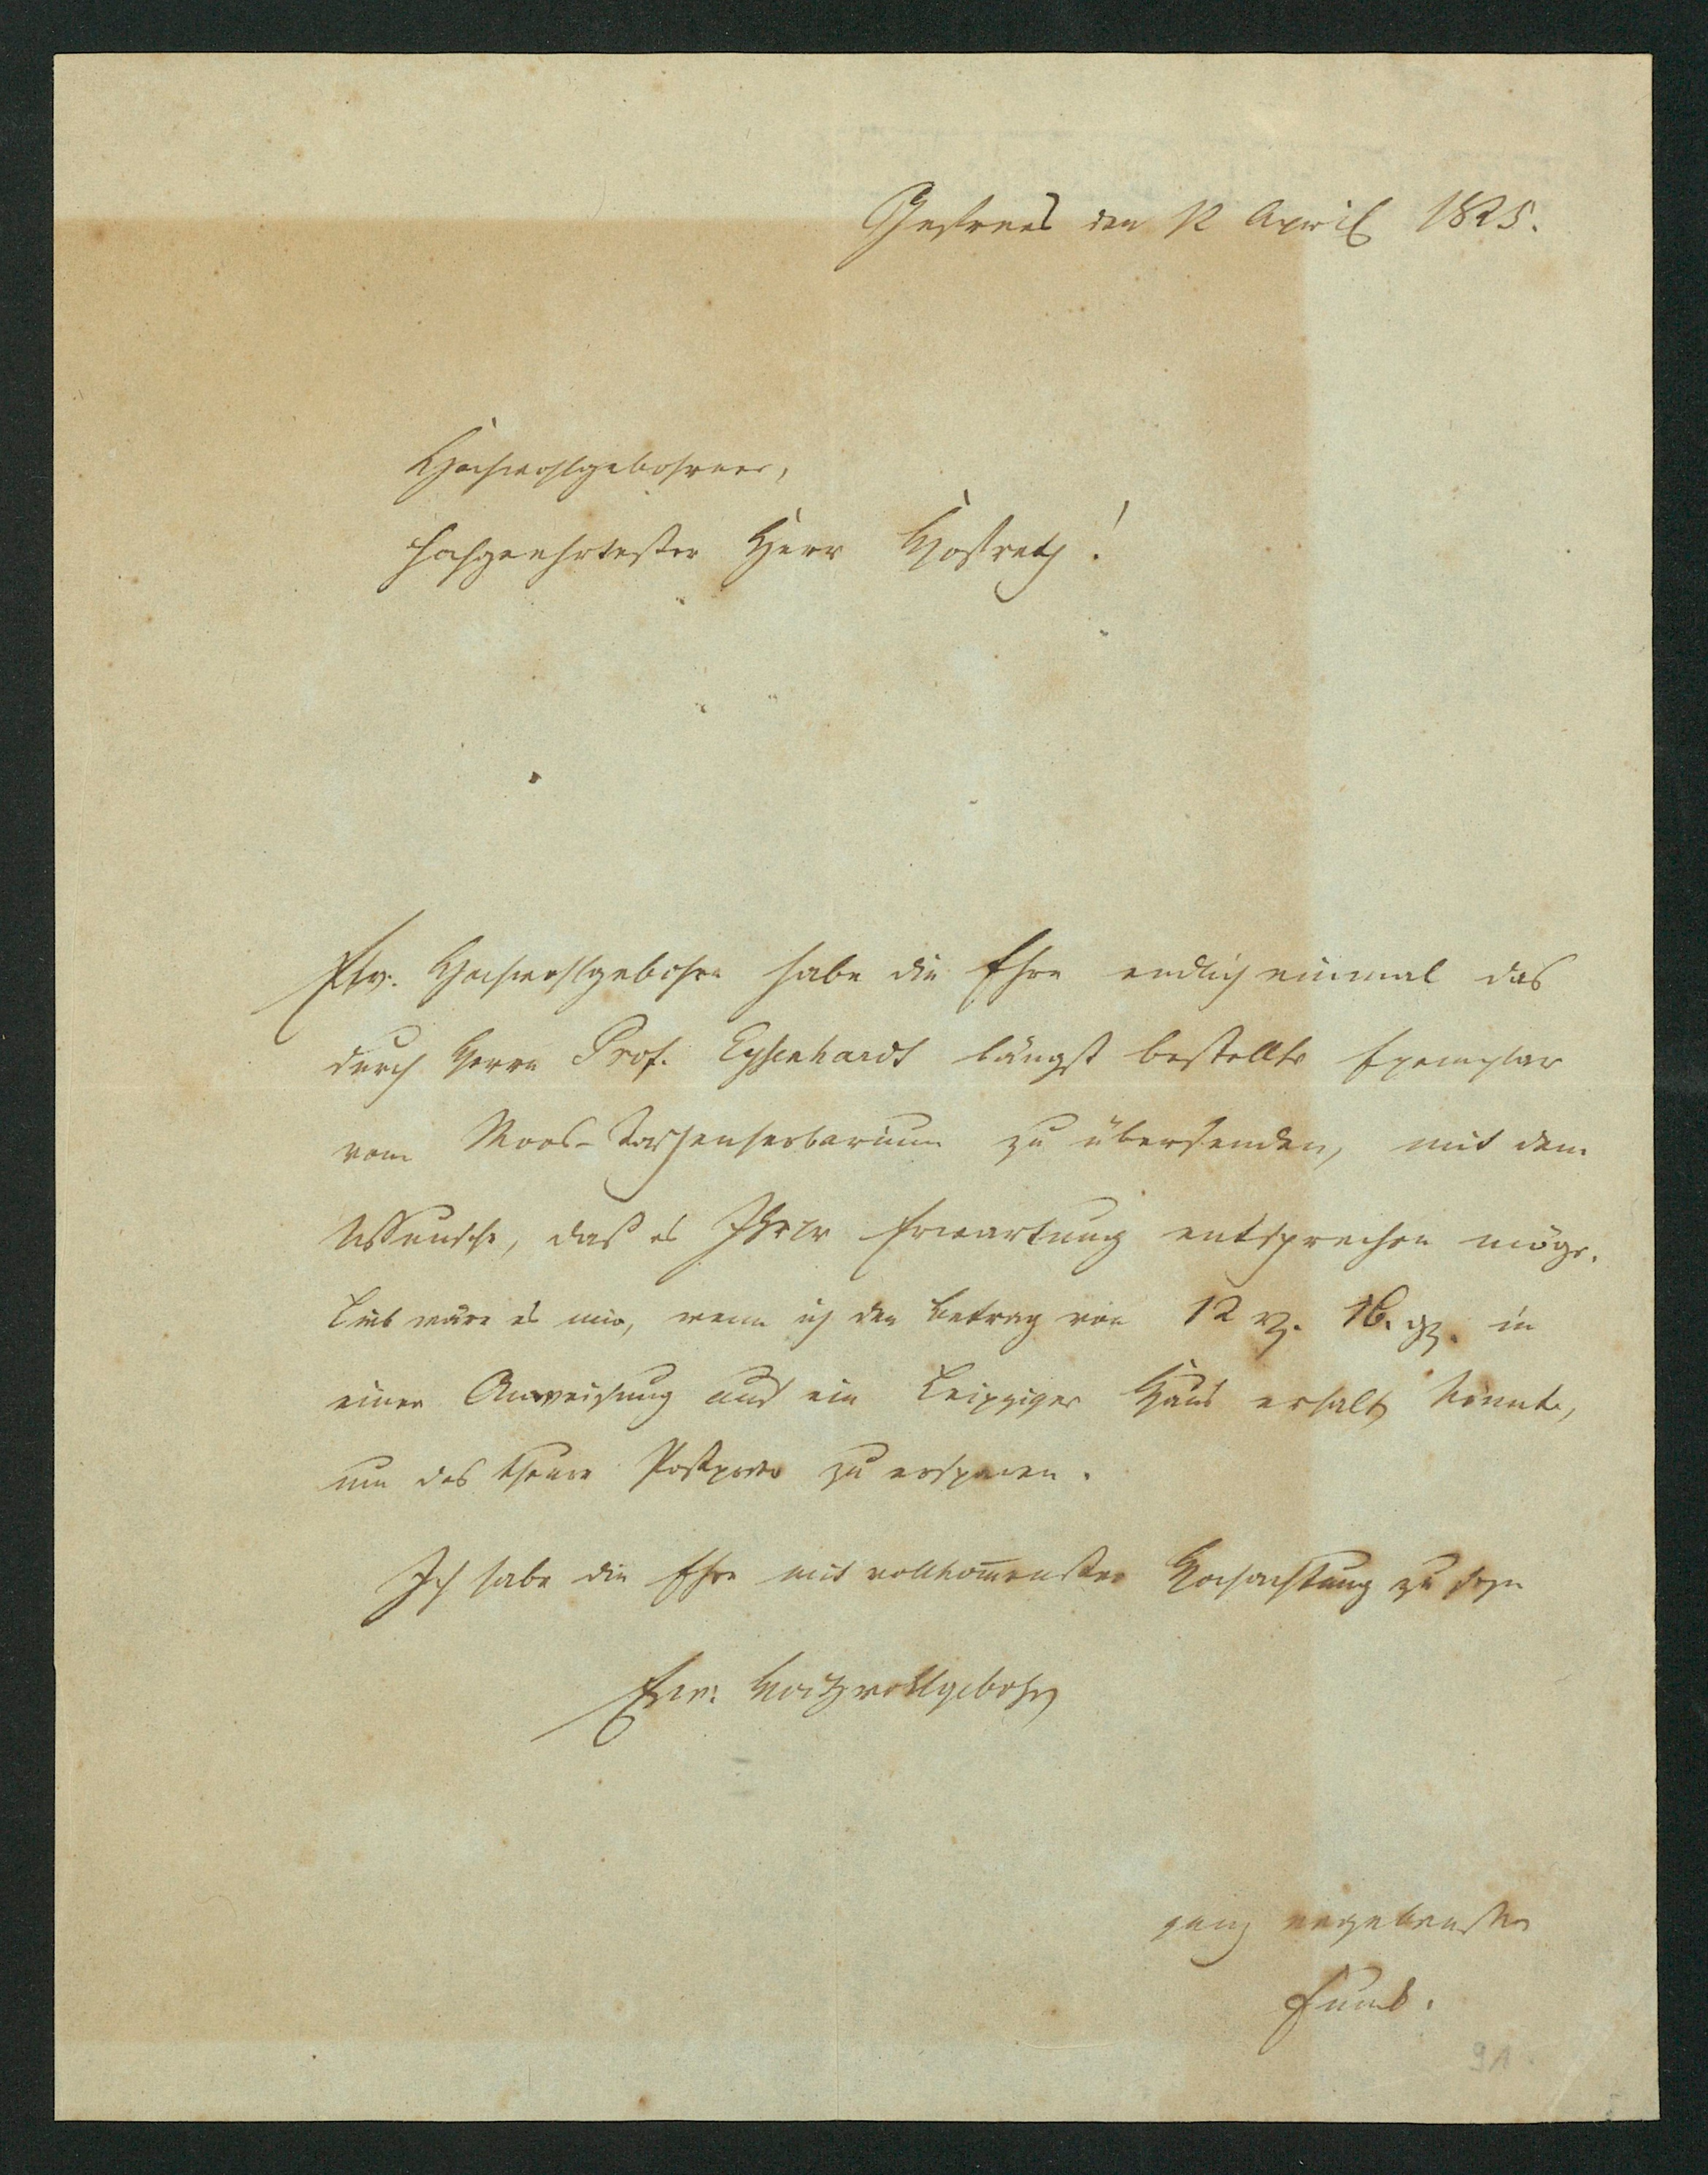 Gefrees den 12 April 1825.
Hochwohlgebohrner,
hochgeehrtester Herr Hofrath!
Ew. Hochwohlgebohrn habe die Ehre endlich einmal das
durch Herrn Prof. Eysenhardt längst bestellte Exemplar
vom Moos-Taschenherbarium zu übersenden, mit dem
Wunsche, daß es Ihrer Erwartung entsprechen möge.
Lieb wäre es mir, wenn ich den Betrag von 12 rh. 16. gr. in
einer Anweisung auf ein Leipziger Haus erhalten könnte,
um das theure Postporto zu ersparen.
Ich habe die Ehre mit vollkom̄enster Hochachtung zu seyn
Ew. Hochwohlgebohrn
ganz ergebenster
Funck.
91